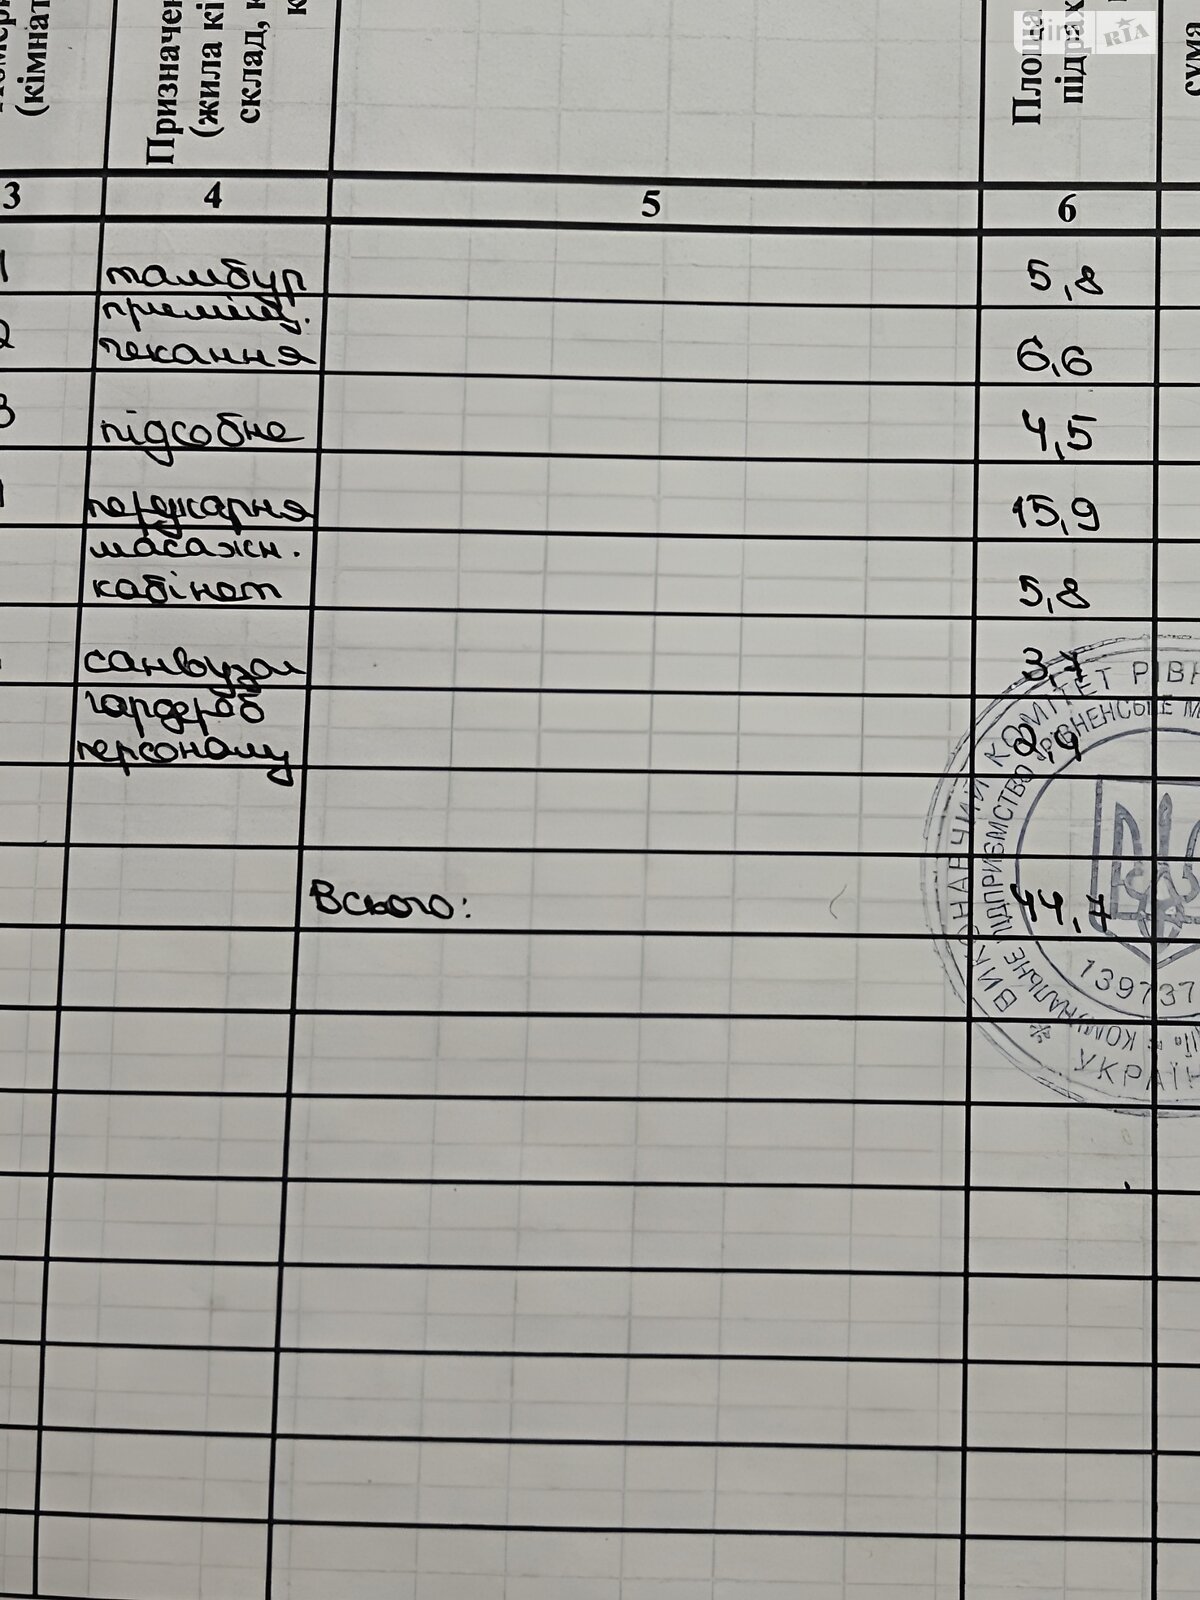 (кімнат
Призначен
(жила кі
склад, к
Площа
підрах
сума
RIA
3 4 5 6
1 тамбур 5,8
приміщ.
2 чекання 6,6
3 підсобне 4,5
перукарня 15,9
масажн.
кабінет 5,8
санвузол 3,7
гардероб
персоналу 2,4
Всього: 44,7
ВИКОНАВЧИЙ КОМІТЕТ РІВН
РІВНЕНСЬКЕ М
КОМУНАЛЬНЕ ПІДПРИЄМСТВО
139737
* УКРАЇН